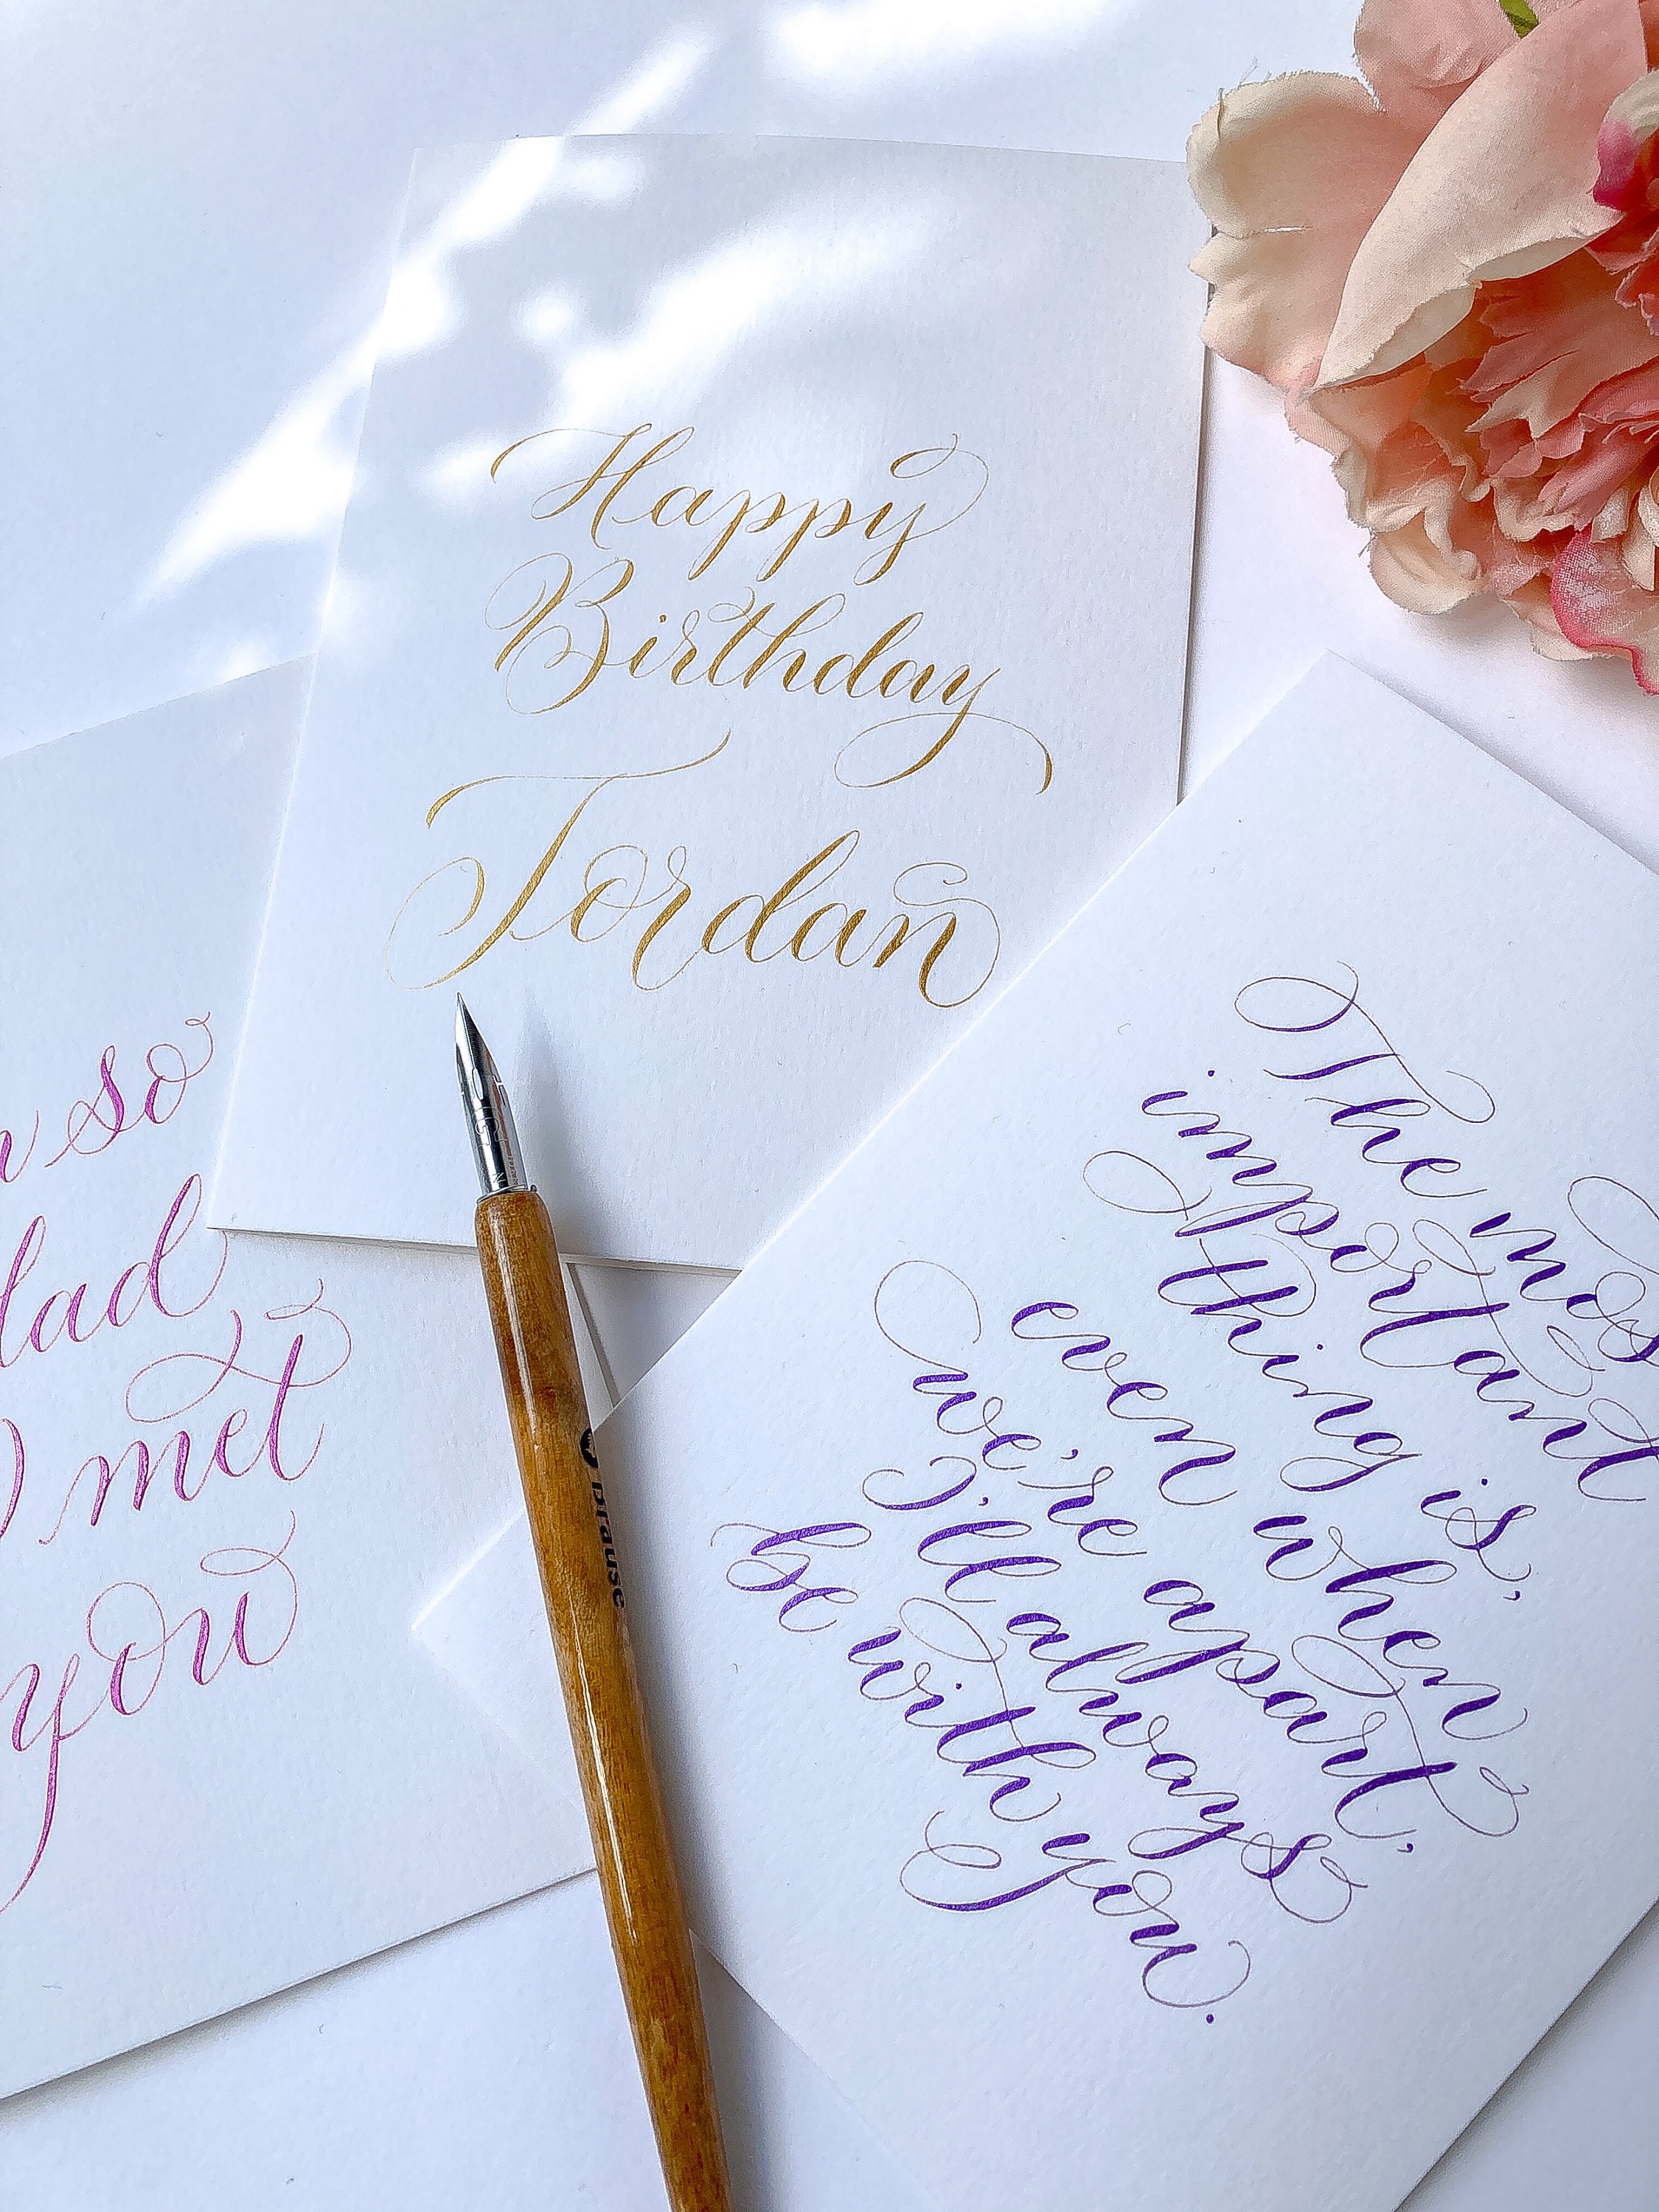 Happy
Birthday
Jordan
so
lad
met
you
The mos
important
thing is,
even when
we're apart,
I'll always
be with you.
Brause